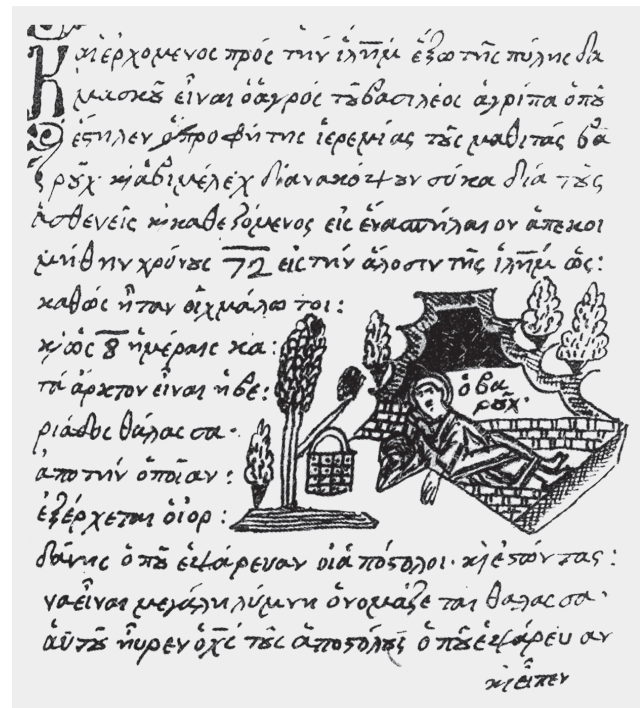 Καὶ ἐρχομενος πρός τὴν ἱλῆμ ἔξω τῆς πύλης δα
μασκοῦ εἶναι ὁ ἀγρός τοῦ βασιλέος ἀγρίπα ὁποῦ
ἔστηλεν ὁ προφήτης ἱερεμίας τοὺς μαθιτάς βα
ροῦχ κὶ ἀβιμέλεχ διὰ νὰ κόψουν σύκα διὰ τοὺς
ἀσθενεῖς κὶ καθεζόμενος εἰς ἕνα σπήλαιον ἀπεκοι
μήθην χρόνους 72 εἰς τὴν ἅλοσιν τῆς ἱλῆμ ὡς:
καθὼς ἦταν οἰχμάλωτοι:
κὶ ὡς 8 ἡμέραις κα:
τὰ ἄρκτον εἶναι ἡ βε:
ριάδος θάλασσα·
ἀπο τὴν ὁποῖαν:
ἐξέρχεται ὁ ἰορ:
ὁ βα
ροῦχ·
δάνης ὁποῦ ἐψάρευαν οἱ ἀπόστολοι· κὶ τας:
να εἶναι μεγάλη λύμνη ὀνομάζεται θάλασσα·
αὐτοῦ ηὗρεν ὁ χς τοὺς ἀποστόλους ὁποῦ ἐψάρευαν
κὶ εἶπεν